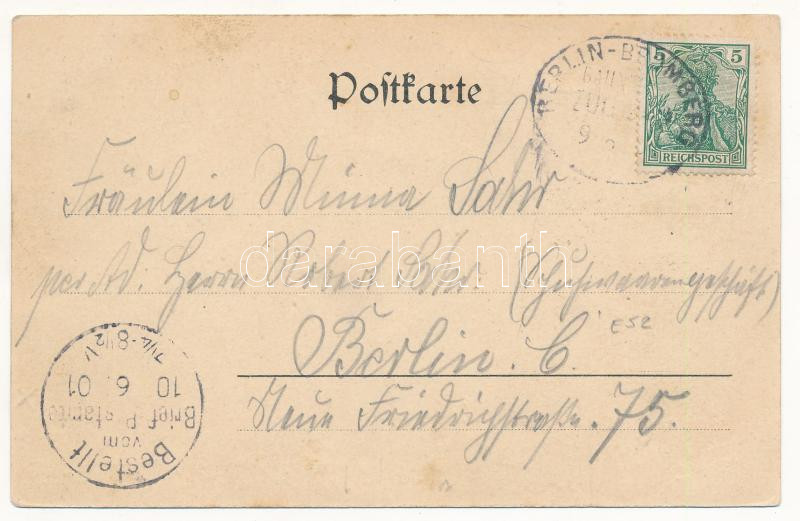 Postkarte
BERLIN-BROMBERG
ZUG
9
5
REICHSPOST
Fräulein Minna Sahr
per Ad. Herrn Robert (Schuhwaarengeschäft)
E52
Berlin. C.
Neue Friedrichstraße. 75.
Bestellt
vom
Brief-Postamte
10 6. 01
7¼-8½ V
darabanth